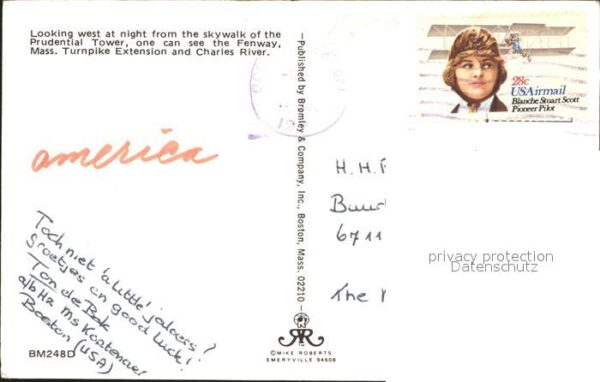 Looking west at night from the skywalk of the
Prudential Tower, one can see the Fenway,
Mass. Turnpike Extension and Charles River.
america
Toch niet 'a little' jaloers?
Groetjes en good luck!
Ton de Bok
a/b Hr Ms Kortenaer
Boston (USA)
BM248D
—Published by Bromley & Company, Inc., Boston, Mass. 02210—
©MIKE ROBERTS
EMERYVILLE 94608
28c
USAirmail
Blanche Stuart Scott
Pioneer Pilot
H.H.
Buur
6711
The
privacy protection
Datenschutz